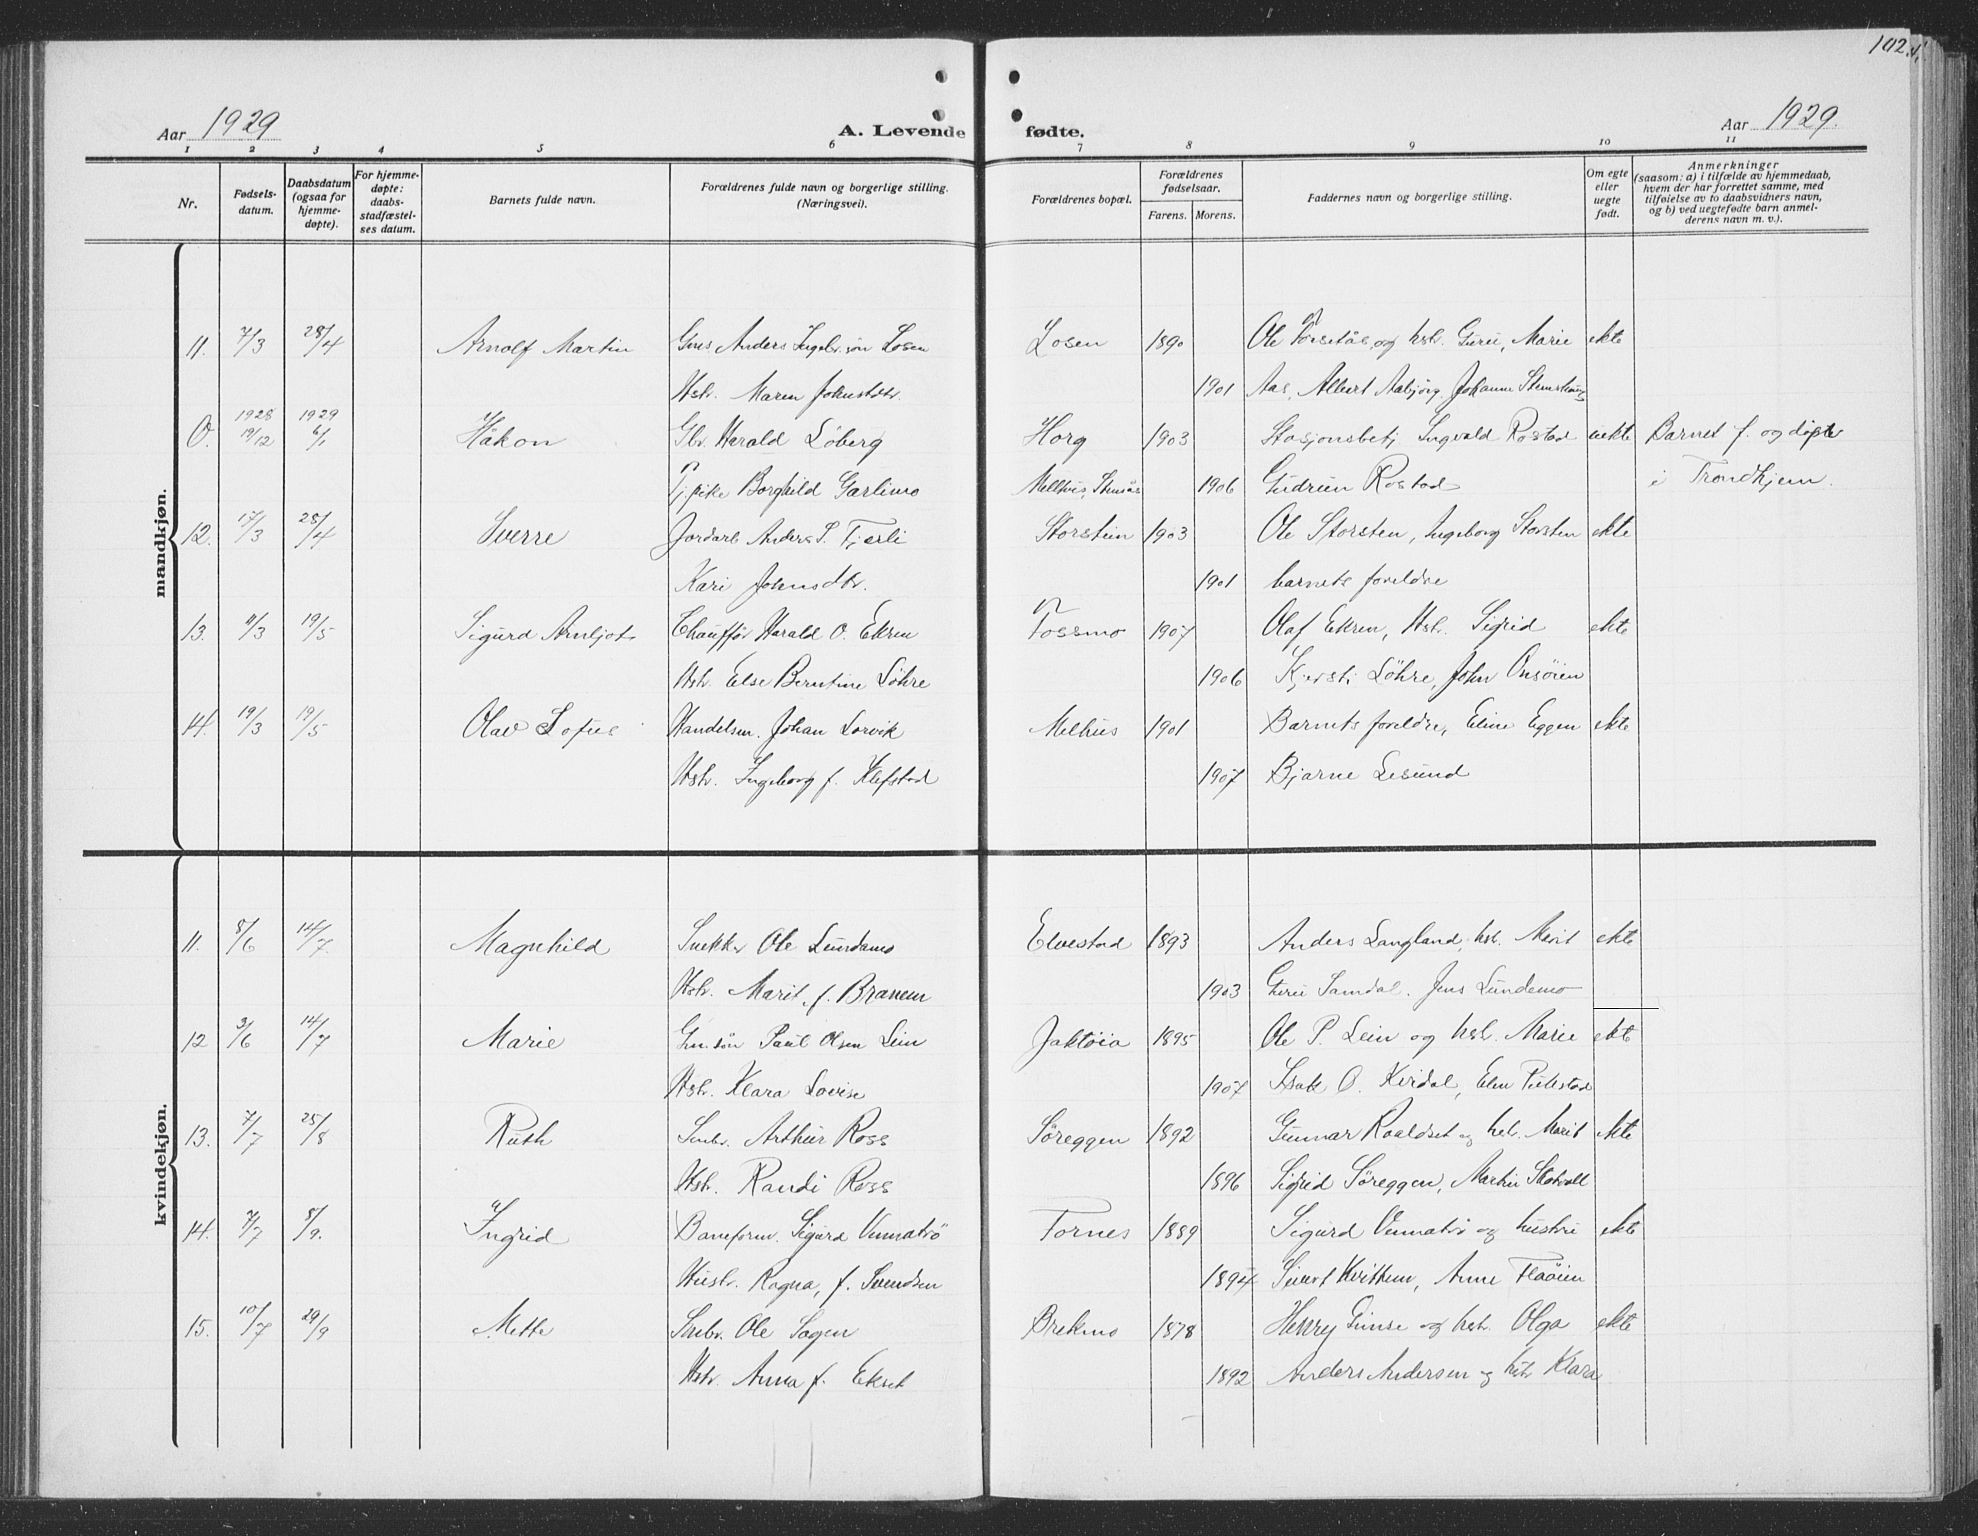 102.
Aar 1929 A. Levende fødte. Aar 1929.
1 2 3 4 5 6 7 8 9 10 11
Nr. Fødsels-datum. Daabsdatum (ogsaa for hjemme-døpte). For hjemme-døpte: daabs-stadfæstel-ses datum. Barnets fulde navn. Forældrenes fulde navn og borgerlige stilling. (Næringsvei). Forældrenes bopæl. Forældrenes fødselsaar. Farens. Morens. Faddernes navn og borgerlige stilling. Om egte eller uegte født. Anmerkninger (saasom: a) i tilfælde av hjemmedaab, hvem der har forrettet samme, med tilføielse av to daabsvidners navn, og b) ved uegtefødte barn anmel-derens navn m. v.).
mandkjøn.
11. 7/3 28/4 Arnolf Martin Anders Losen Losen 1890 Ole og hst. Guru, Marie ekte
Hstr. Maren Johnsdtr. 1901 Aas, Albert Aabjørg, Johanne
1928 1929
O. 19/12 6/1 Håkon Gbr. Harald Løberg Horg 1903 Stasjonsbetj. Ingvald Rostad uekte Barnet f. og døpt
Tj. pike Borghild Garlimo 1906 Gudrun Rostad i Trondhjem.
12. 17/3 28/4 Sverre Jordarb. Anders P. Tjerli Storstein 1903 Ole Storsten, Ingeborg Storsten ekte
Kari Johnsdtr. 1901 barnets foreldre
13. 11/3 19/5 Sigurd Arnljot Chauffør Harald O. Ekren Fossmo 1907 Olaf Ekren, Hst. Sigrid ekte
Hstr. Else Berntine Löhre 1906 Kjersti Löhre, John Onsöien
14. 19/3 19/5 Olav Lofus Handelsm. Johan Lorvik Melhus 1901 Barnets foreldre, Eline Eggen ekte
Hstr. Ingeborg f. Klefstad 1907 Bjarne Lesund
kvindekjøn.
11. 8/6 14/7. Magnhild Snekker Ole Lundamo Elvestad 1893 Anders Langland, hst. Marit ekte
Hstr. Marit, f. Branem 1903 Guru Samdal. Jens Lundemo
12 3/6 14/7 Marie Gm.søn Paul Olsen Lein Jaktöia 1895 Ole P. Lein og hst. Marie ekte
Hstr. Klara Lovise 1907 Isak O. Kvidal, Elen
13. 7/7 25/8 Ruth Smbr. Arthur Ross Söreggen 1892 Gunnar Roaldset og hst. Marit ekte
Hstr. Randi Ross 1896 Sigrid Söreggen, Martin Skotvoll
14. 7/7 8/9. Ingrid Baneform. Sigurd Vinnatrö Fornes 1889 Sigurd Vinnatrö og hustru ekte
Hustr. Ragna, f. Svendsen 1894 Sivert Kvithem, Anne Flaöien
15. 10/7 29/9 Mette Smbr. Ole Sagen Brekmo 1878 Henry Gimse og hst. Olga ekte
Hstr. Anna f. Ekset 1892 Anders Andersen og hst Klara